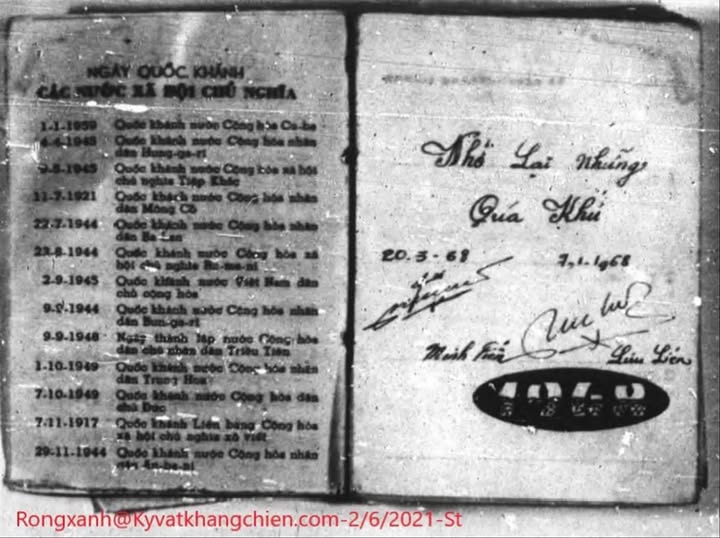 NGÀY QUỐC KHÁNH
CÁC NƯỚC XÃ HỘI CHỦ NGHĨA
1-1-1959 Quốc khánh nước Cộng hòa Cu-ba
4-4-1945 Quốc khánh nước Cộng hòa nhân
dân Hung-ga-ri
9-5-1945 Quốc khánh nước Cộng hòa xã hội
chủ nghĩa Tiệp Khắc
11-7-1921 Quốc khánh nước Cộng hòa nhân
dân Mông Cổ
22-7-1944 Quốc khánh nước Cộng hòa nhân
dân Ba Lan
23-8-1944 Quốc khánh nước Cộng hòa xã
hội chủ nghĩa Ru-ma-ni
2-9-1945 Quốc khánh nước Việt Nam dân
chủ cộng hòa
9-9-1944 Quốc khánh nước Cộng hòa nhân
dân Bun-ga-ri
9-9-1948 Ngày thành lập nước Cộng hòa
dân chủ nhân dân Triều Tiên
1-10-1949 Quốc khánh nước Cộng hòa nhân
dân Trung Hoa
7-10-1949 Quốc khánh nước Cộng hòa dân
chủ Đức
7-11-1917 Quốc khánh Liên bang Cộng hòa
xã hội chủ nghĩa xô viết
29-11-1944 Quốc khánh nước Cộng hòa nhân
dân An-ba-ni
Nhớ Lại Những
Qúa Khứ
20-3-68 7.1.1968
Minh Lưu Liên
1968
Rongxanh@Kyvatkhangchien.com-2/6/2021-St